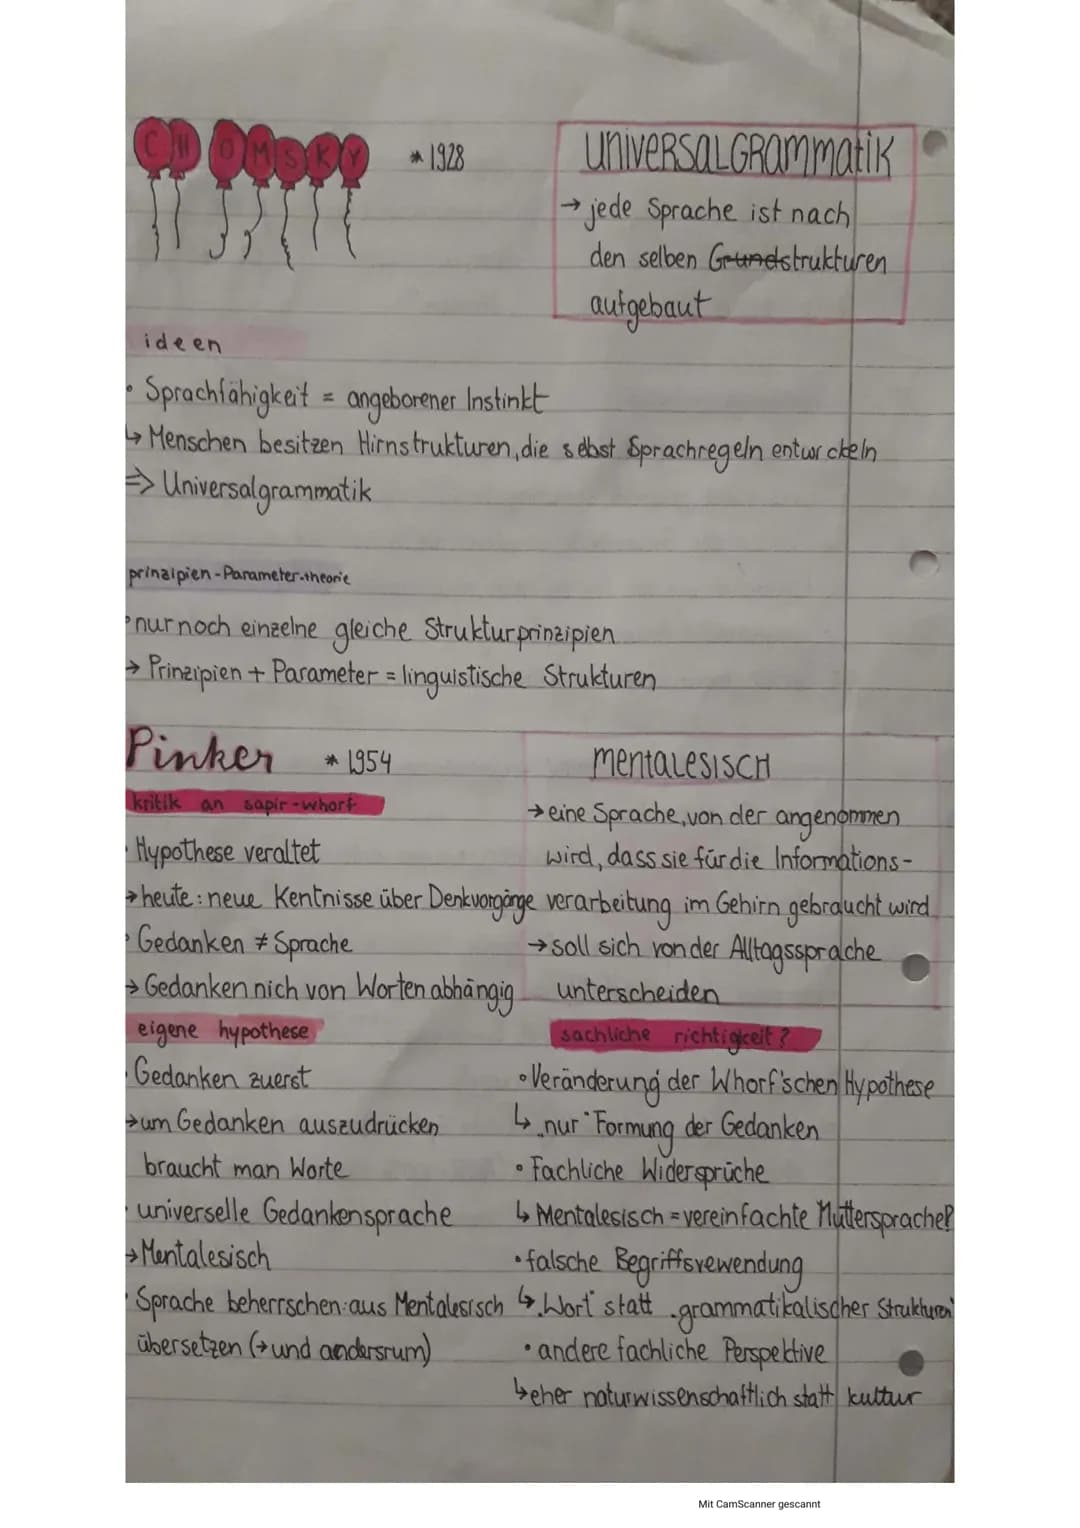 CHOMSKY * 1928
UNIVERSALGRAMMATIK
→ jede Sprache ist nach
den selben Grundstrukturen
aufgebaut
ideen
• Sprachfähigkeit = angeborener Instinkt
↳ Menschen besitzen Hirnstrukturen, die selbst Sprachregeln entwickeln
⇒ Universalgrammatik
prinzipien-Parameter-theorie
• nur noch einzelne gleiche Strukturprinzipien
→ Prinzipien + Parameter = linguistische Strukturen
Pinker * 1954
kritik an sapir-whorf
• Hypothese veraltet
→ heute: neue Kentnisse über Denkvorgänge
• Gedanken ≠ Sprache
→ Gedanken nich von Worten abhängig
MENTALESISCH
→ eine Sprache, von der angenommen
wird, dass sie für die Informations-
verarbeitung im Gehirn gebraucht wird
→ soll sich von der Alltagssprache
unterscheiden
eigene hypothese
• Gedanken zuerst
→ um Gedanken auszudrücken
braucht man Worte
• universelle Gedankensprache
→ Mentalesisch
• Sprache beherrschen: aus Mentalesisch
übersetzen (→ und andersrum)
sachliche richtigkeit?
• Veränderung der Whorf'schen Hypothese
↳ „nur" Formung der Gedanken
• Fachliche Widersprüche
↳ Mentalesisch = vereinfachte Muttersprache?
• falsche Begriffsvewendung
↳ „Wort" statt „grammatikalischer Strukturen"
• andere fachliche Perspektive
↳ eher naturwissenschaftlich statt kultur
Mit CamScanner gescannt